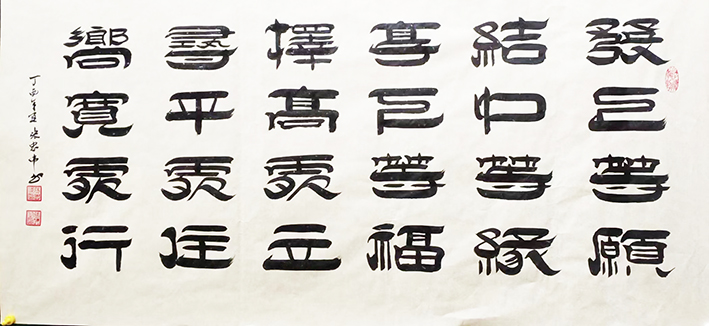 發上等願
結中等緣
享下等福
擇高處立
尋平處住
嚮寬處行
丁酉年夏